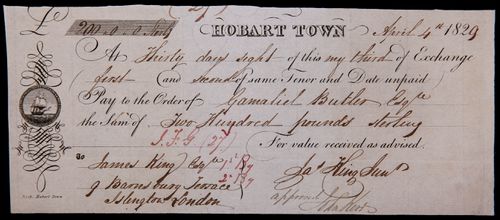 £ 200 „ 0 „ 0 Sterlg
HOBART TOWN April 4th 1829
At Thirty days sight of this my third of Exchange
(first and second of same Tenor and Date unpaid
Pay to the Order of Gamaliel Butler Esqre
the Sum of Two Hundred pounds Sterling
For value received as advised.
To James King Esqre
9 Barnsbury Terrace
Islington London
Jas King Junr
approved
Hobart Town